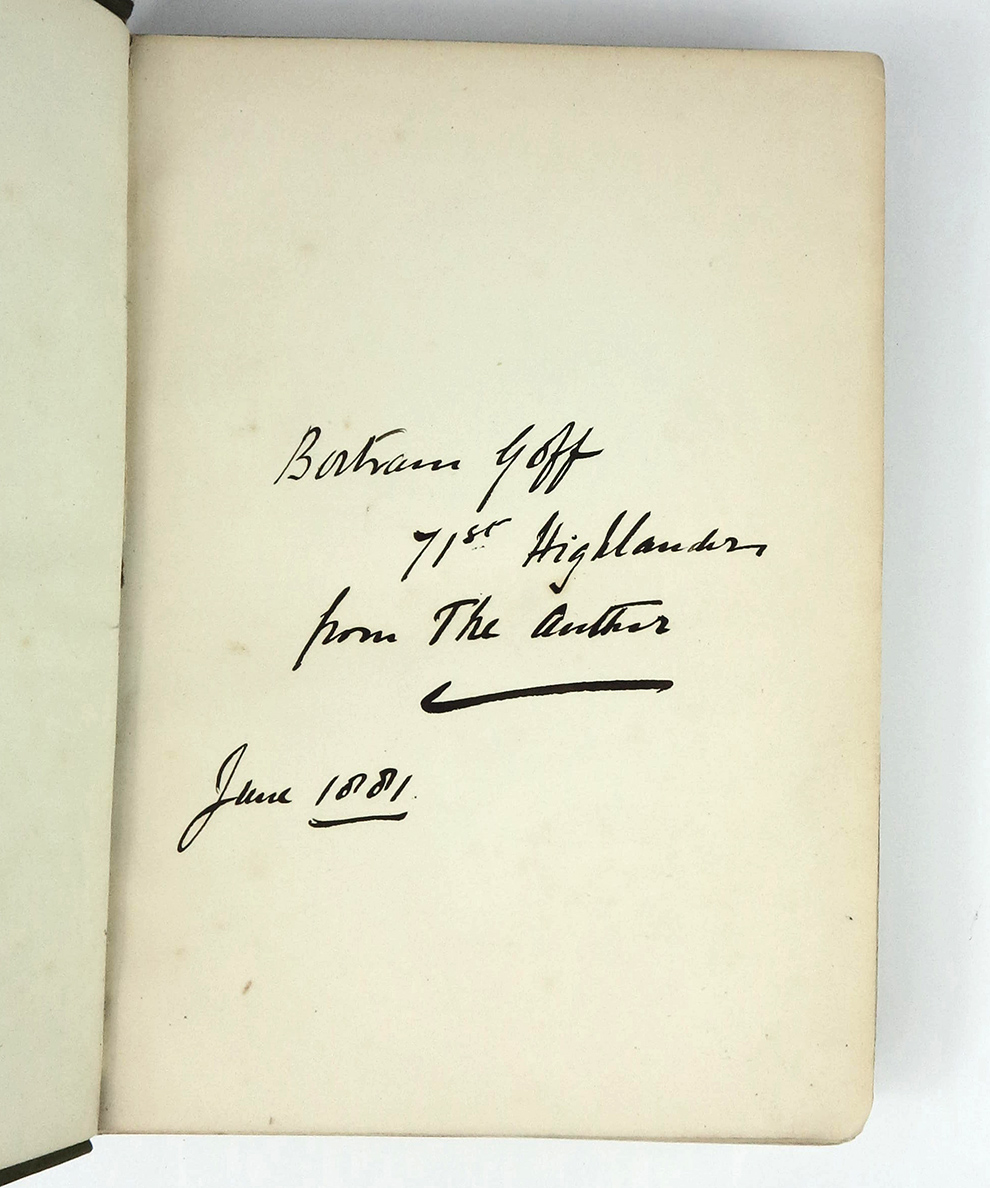 Bertram Goff
71st Highlanders
from The Author
June 1881